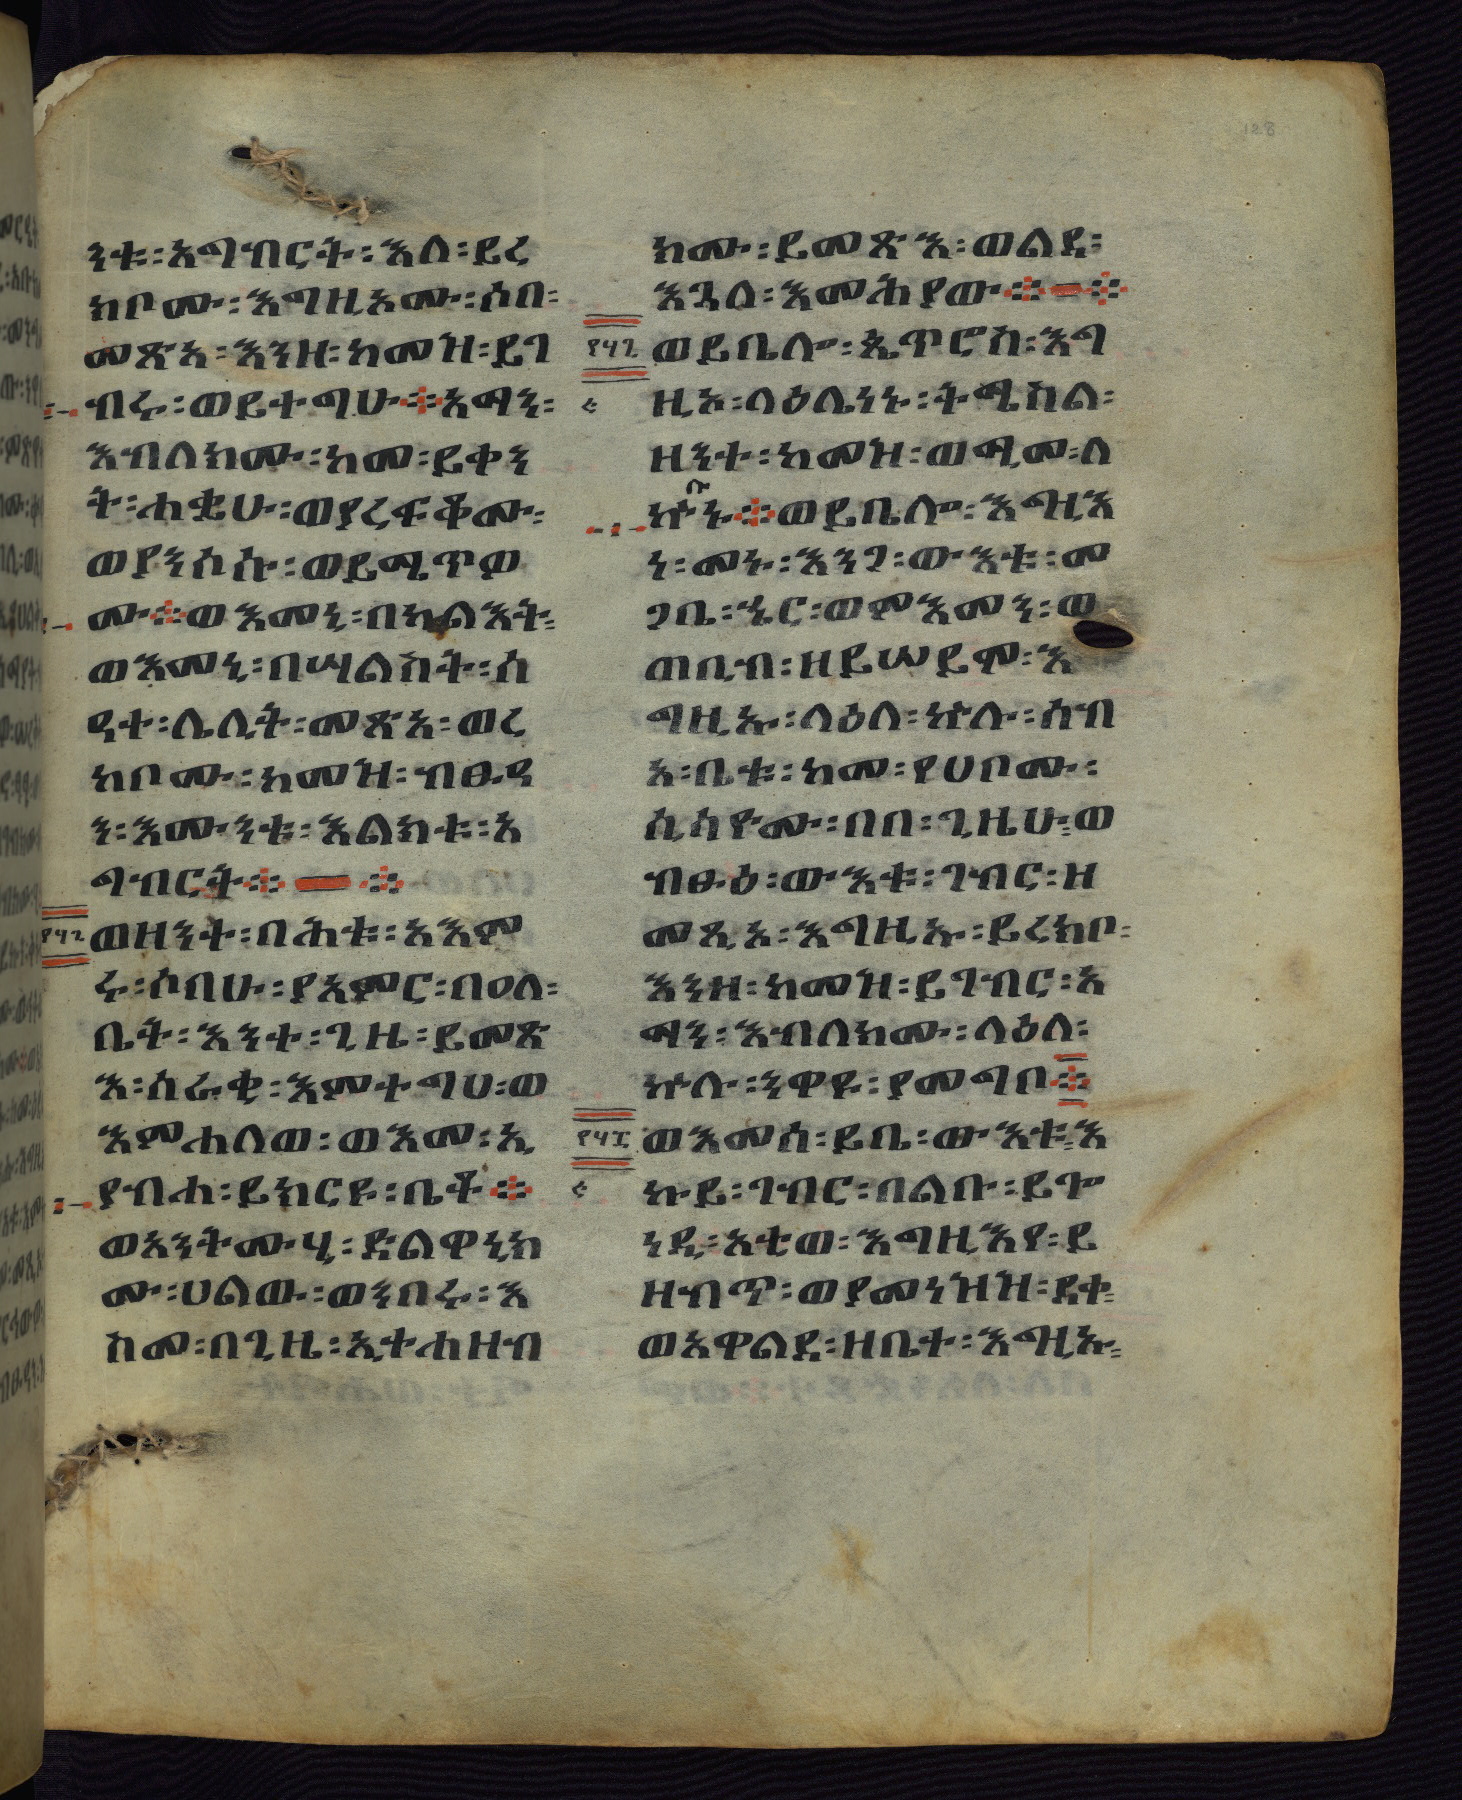 ንቱ፡አግብርት፡እለ፡ይረ
ክቦሙ፡እግዚአሙ፡ሶበ፡
መጽአ፡እንዘ፡ከመዝ፡ይገ
ብሩ፡ወይተግሁ፨አማን፡
እብለክሙ፡ከመ፡ይቀን
ት፡ሐቌሁ፡ወያረፍቆሙ፡
ወያንሶሱ፡ወይሜጥወ
ሙ፨ወእመኒ፡በካልእት፡
ወእመኒ፡በሣልስት፡ሰ
ዓተ፡ሌሊት፡መጽአ፡ወረ
ክቦሙ፡ከመዝ፡ብፁዓ
ን፡እሙንቱ፡እልክቱ፡አ
ግብርት፨ — ፨
፻፶፪ ወዘንተ፡በሕቱ፡አእም
ሩ፡ሶበሁ፡ያአምር፡በዐለ፡
ቤት፡እንተ፡ጊዜ፡ይመጽ
እ፡ሰራቂ፡እምተግሀ፡ወ
እምሐለወ፡ወእመ፡ኢ
ያብሐ፡ይክርዩ፡ቤቶ፨
ወአንትሙሂ፡ድልዋኒክ
ሙ፡ሀልው፡ወንበሩ፡እ
ስመ፡በጊዜ፡ኢተሐዘብ
ክሙ፡ይመጽእ፡ወልደ፡
እጓለ፡እመሕያው፨—፨
ወይቤሎ፡ጴጥሮስ፡እግ
ዚኦ፡ላዕሌነኑ፡ትሜስል፡
ዘንተ፡ከመዝ፡ወሚመ፡ለ
ኵሉኑ፨ወይቤሎ፡እግዚእ
ነ፡መኑ፡እንጋ፡ውእቱ፡መ
ጋቤ፡ኄር፡ወምእመን፡ወ
ጠቢብ፡ዘይሠይም፡እ
ግዚኡ፡ላዕለ፡ኵሉ፡ሰብ
አ፡ቤቱ፡ከመ፡የሀቦሙ፡
ሲሳዮሙ፡በበ፡ጊዜሁ፡ወ
ብፁዕ፡ውእቱ፡ገብር፡ዘ
መጺአ፡እግዚኡ፡ይረክቦ፡
እንዘ፡ከመዝ፡ይገብር፡አ
ማን፡እብለክሙ፡ላዕለ፡
ኵሉ፡ንዋዩ፡ያመግቦ፨
ወእመሰ፡ይቤ፡ውእቱ፡እ
ኩይ፡ገብር፡በልቡ፡ይጐ
ነዲ፡አቲወ፡እግዚእየ፡ይ
ዘብጥ፡ወያመነዝዝ፡ደቀ፡
ወአዋልደ፡ዘቤተ፡እግዚኡ፡